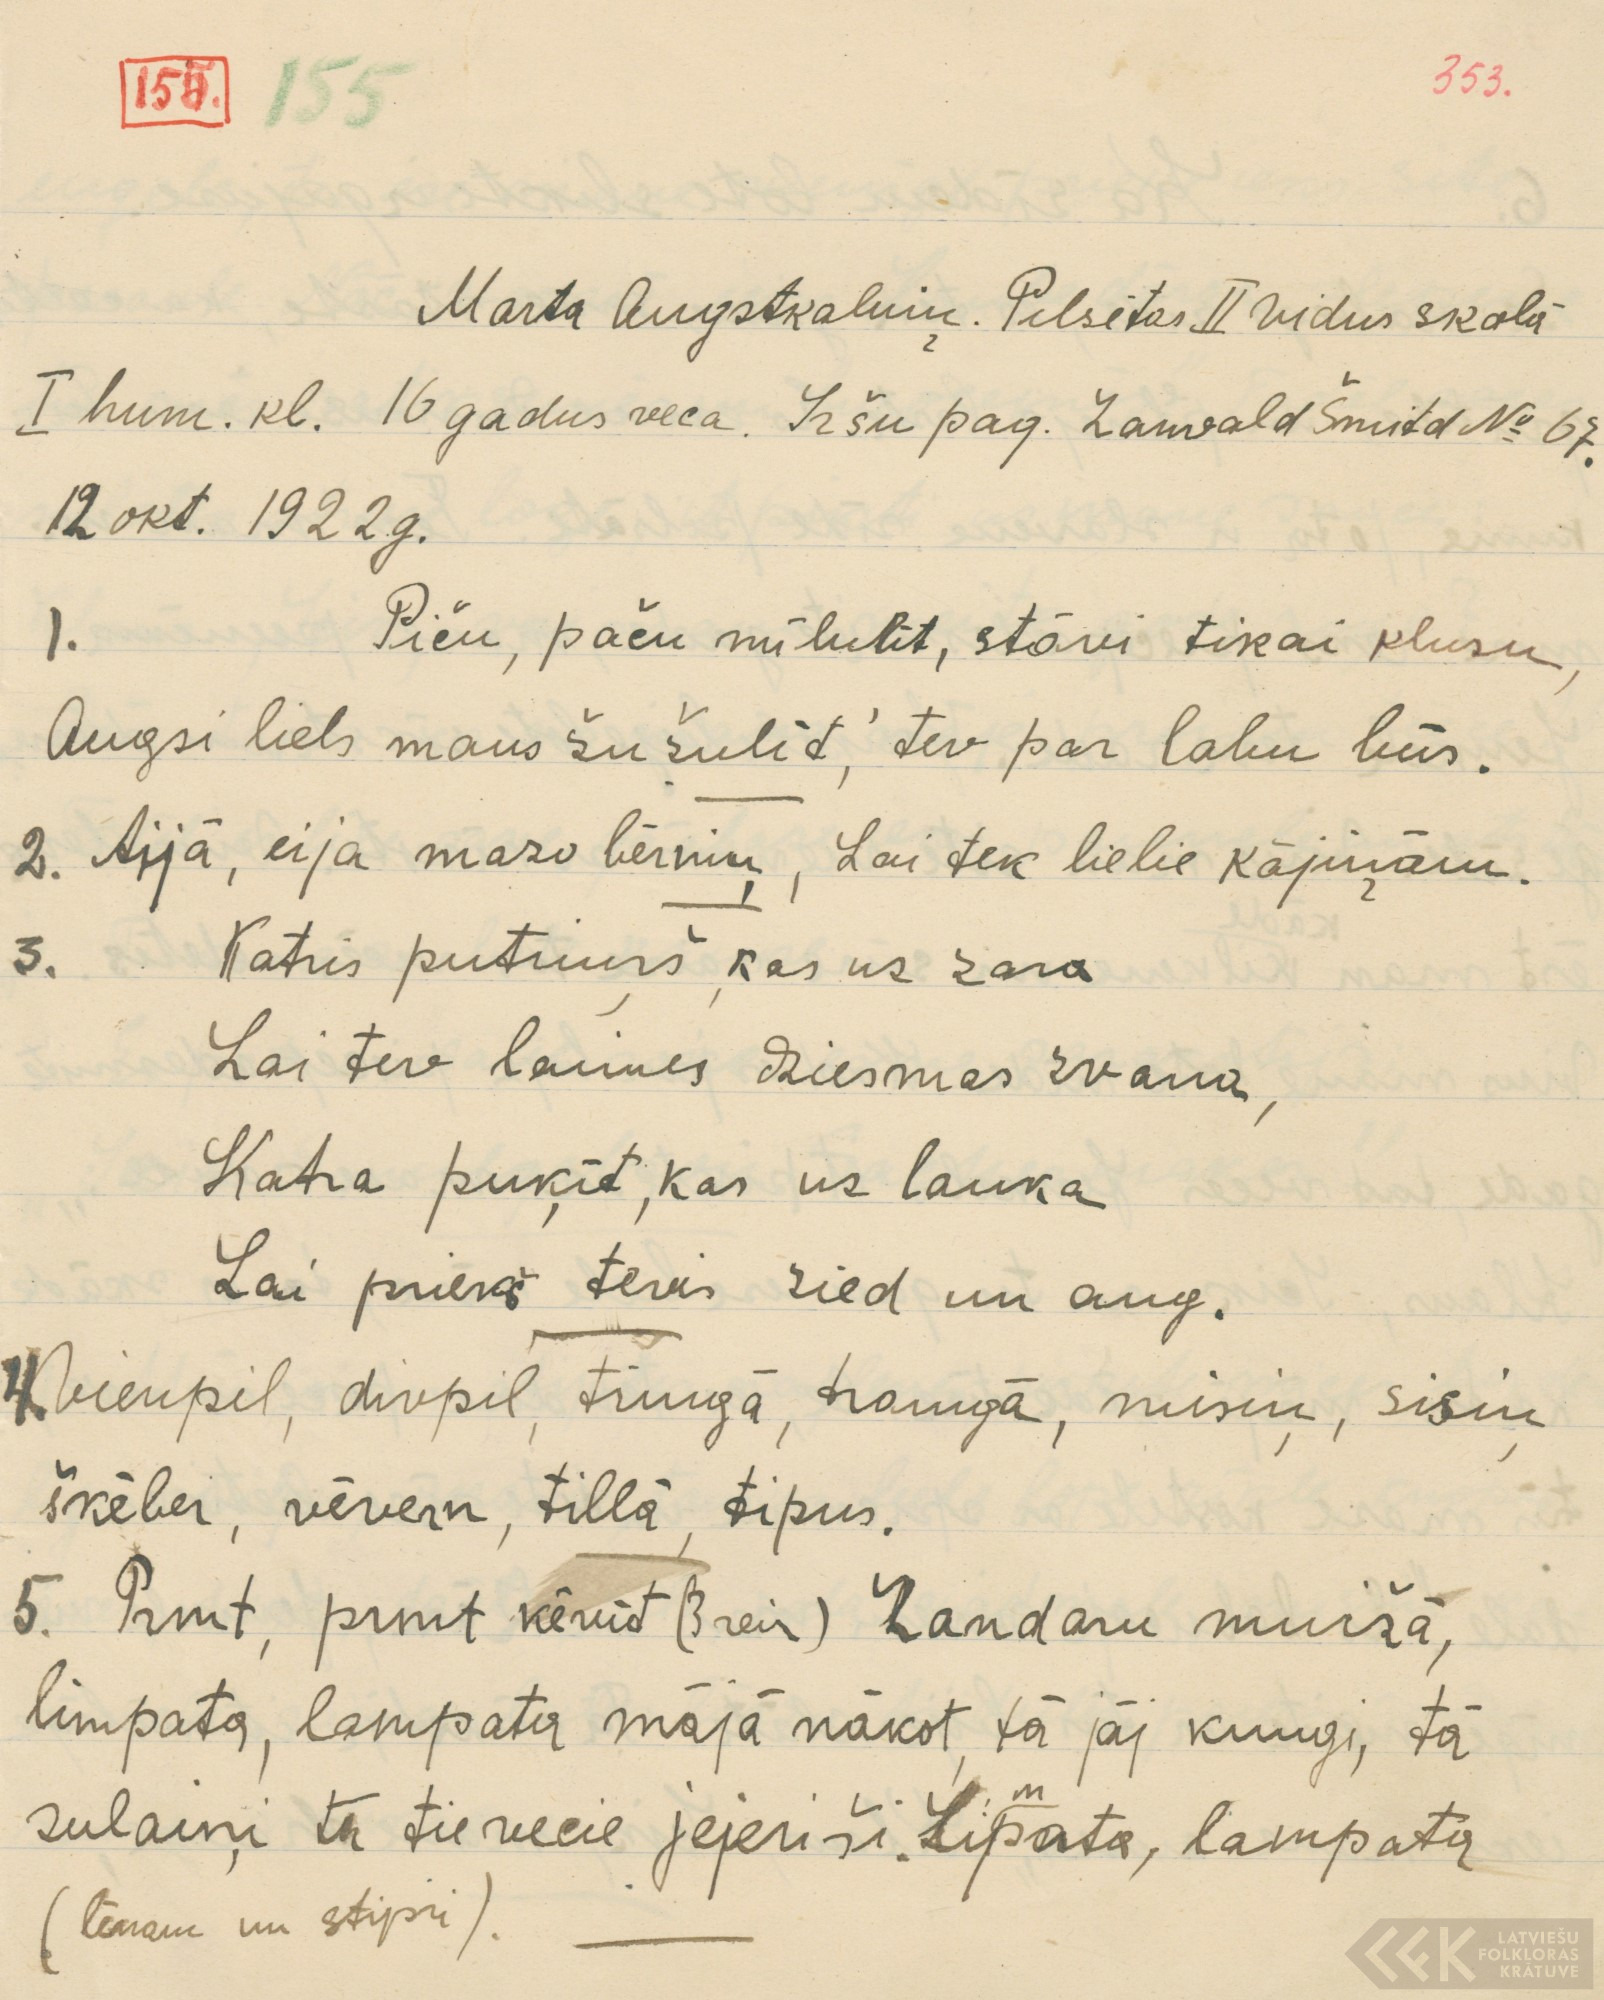 155. 155 353.
Marta Augstkalniņ. Pilsētas II vidus skolā
I hum. kl. 16 gadus veca. Iršu pag. Šmitd № 67.
12 okt. 1922 g.
1. Piču, paču mīlulīt, stāvi tikai klusu,
Augsi liels mans žužulīt, tev par labu būs.
2. Aijā, eija mazo bērniņ, Lai tek lielie kājiņām.
3. Katris putniņš, kas uz zara
Lai tev laimes dziesmas zvana,
Katra puķīt, kas uz lauka
Lai priekš tevis zied un aug.
4. Vienpil, divpil, tringā, trangā, misiņ, sisiņ
šķēber, vēvern, tillā, tipus.
5. Prmt, prmt kēvīt (3 reiz) Zandaru muižā,
limpata, lampata mājā nākot, tā jāj kungi, tā
sulaiņi tā tie vecie jejeriši. Limpata, lampata
(lēnam un stipri).
LATVIEŠU
FOLKLORAS
KRĀTUVE